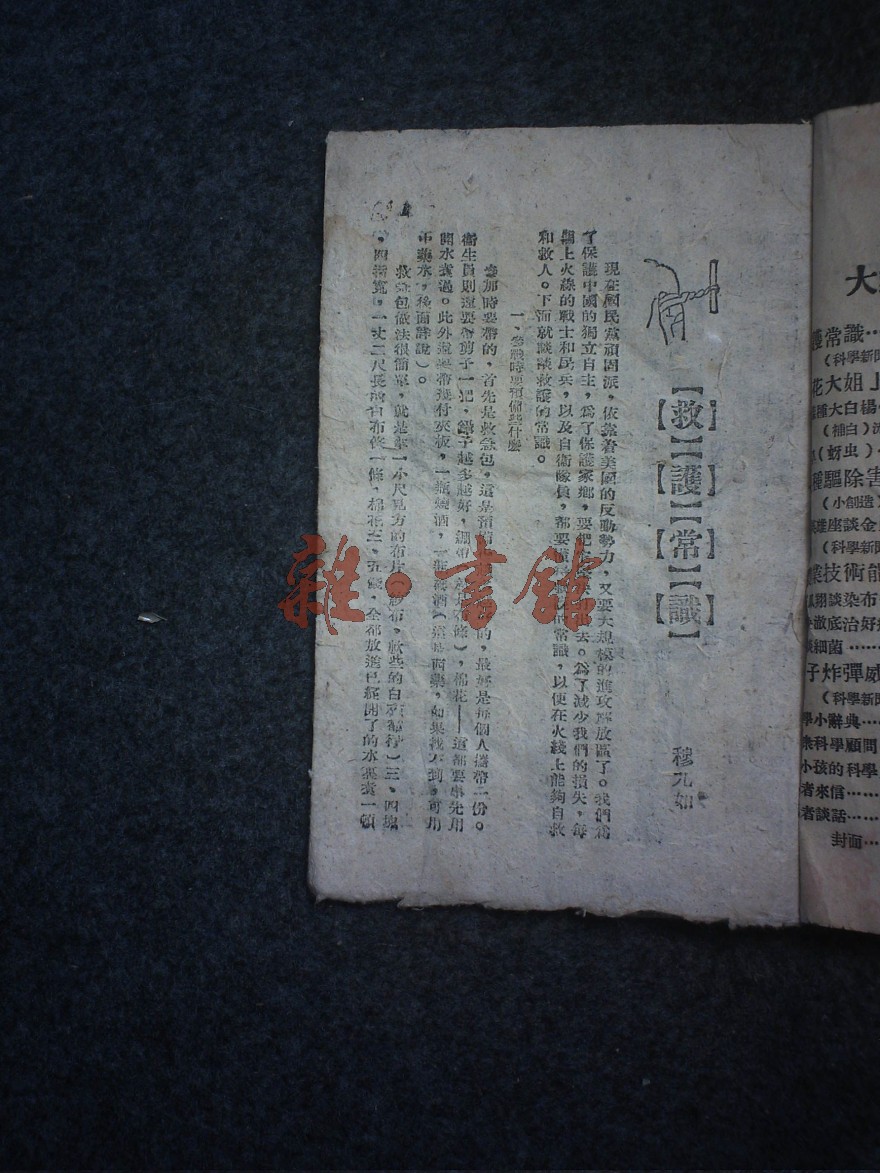 【救】【護】【常】【識】
穆九如
現在國民黨頑固派，依靠着美國的反動勢力，又要大規模的進攻解放區了。我們爲
了保護中國的獨立自主，爲了保護家鄉，要把
去。爲了減少我們的損失，每
個上火線的戰士和民兵，以及自衛隊員，都要
常識，以便在火綫上能夠自救
和救人。下面就談談救護的常識。
一、參戰時要預備些什麼
參加時要帶的，首先是救急包，這是預備
的，最好是每個人攜帶二份。
衞生員則還要帶剪子一把，鑷子越多越好，綳帶
條），棉花——這都要事先用
開水煮過。此外還要帶幾付夾板，一瓶燒酒，一瓶
酒（這是西藥，如果找不到，可用
水，後面詳說）。
救急包做法很簡單，就是拿一小尺見方的布片
布，軟些的白布
行）三、四塊
，四指寬，一丈二尺長的白布條一條，棉花三、五錢，全都放進已經開了的水裏煮一頓
雜·書館
大
護常識……
（科學新聞
花大姐
種大白楊
（補白）
（蚜虫）
種驅除害
（小創造）
座談金
（科學新聞
業技術能
翻談染布
澈底治好
細菌……
子炸彈威
（科學新聞
學小辭典……
科學顧問
小孩的科學
者來信……
者談話……
封面……